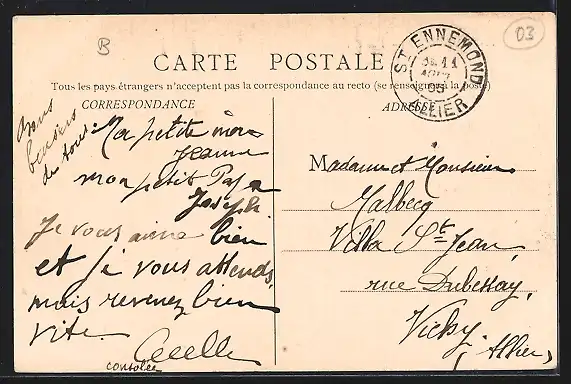 B
03
CARTE POSTALE
Tous les pays étrangers n'acceptent pas la correspondance au recto (se renseigner à la poste)
CORRESPONDANCE
ADRESSE
ST ENNEMOND
ALLIER
Bons
baisers
de tous
Ma petite
Jeanne
mon petit Papa
Joseph
Je vous aime bien
et je vous attends,
mais revenez bien
vite.
consolée
Madame et Monsieur
Malbecq
Villa Ste Jean,
rue Dubessay,
Vichy.
(Allier)